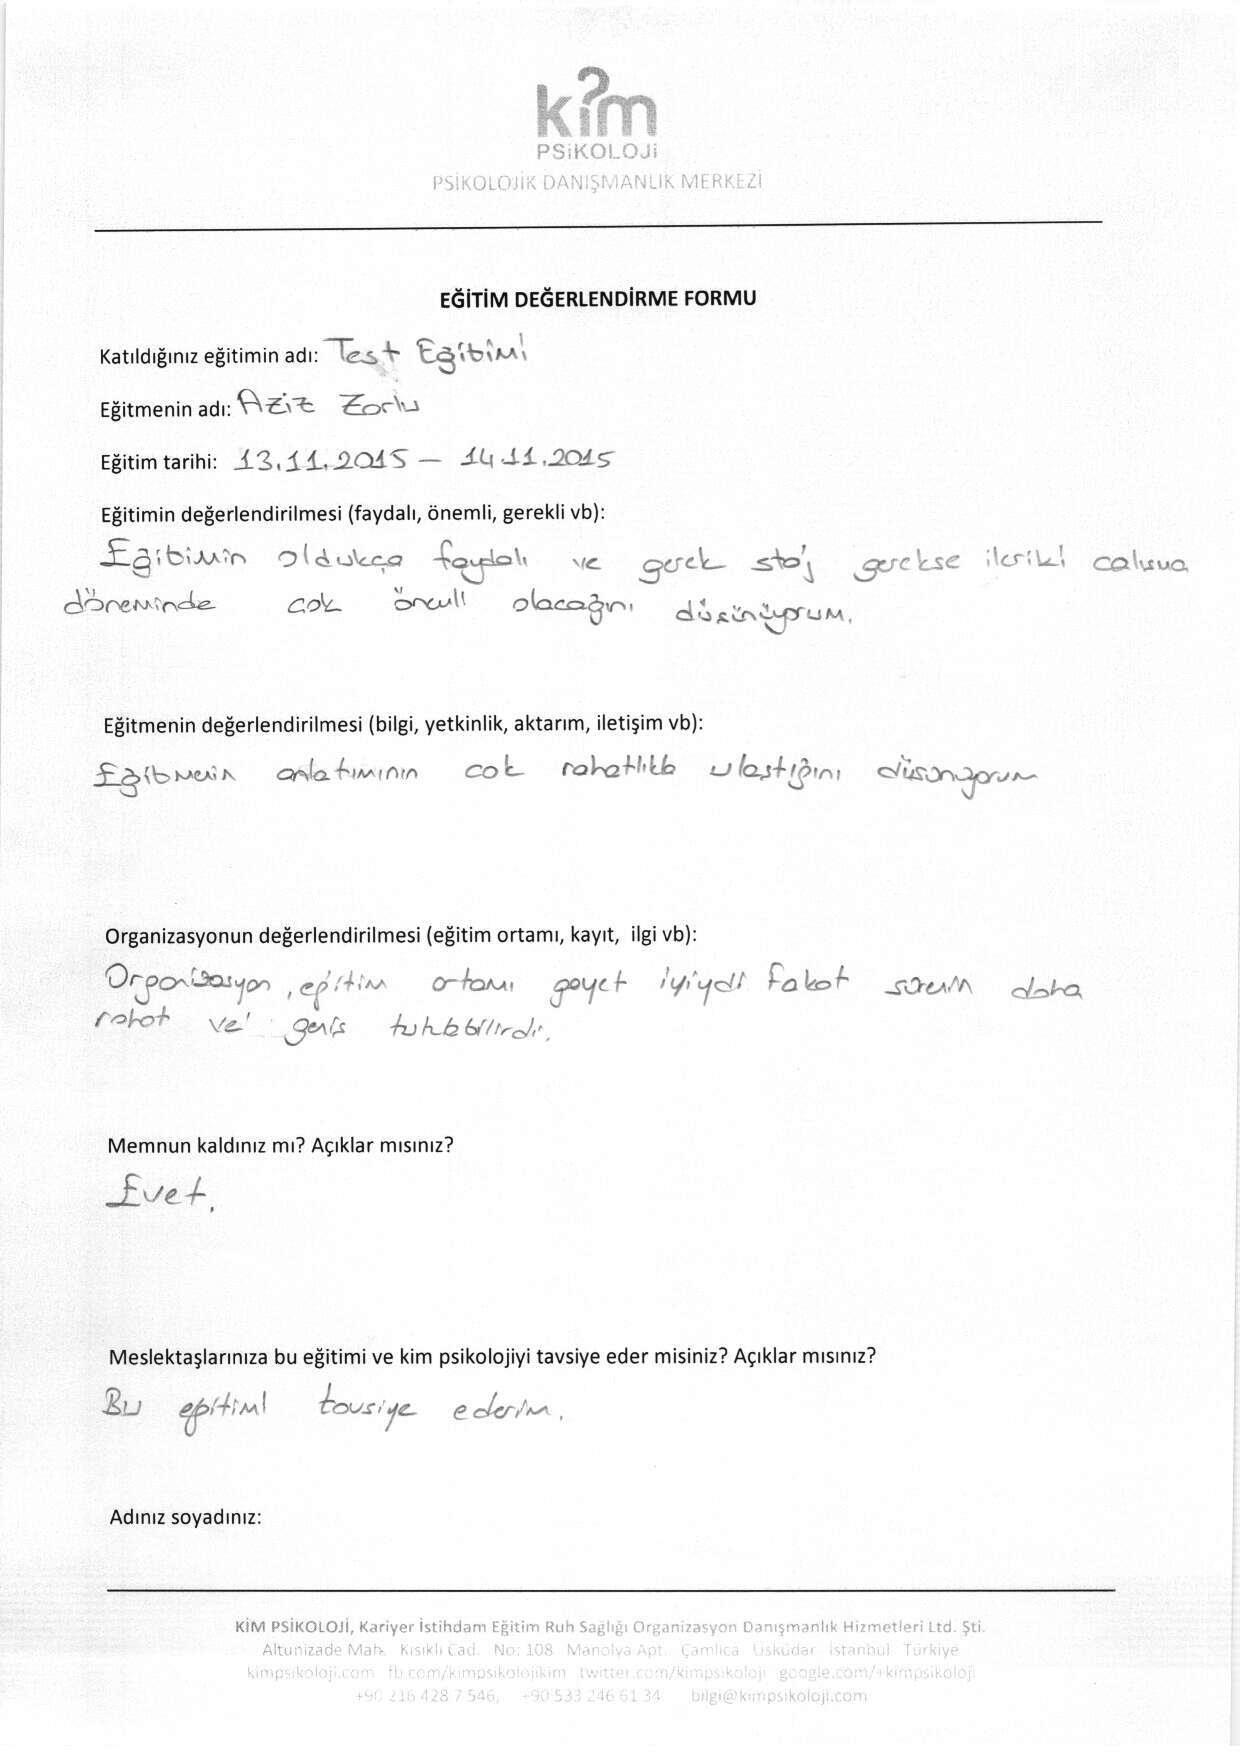 kim
PSiKOLOJi
PSİKOLOJİK DANIŞMANLIK MERKEZİ
EĞİTİM DEĞERLENDİRME FORMU
Katıldığınız eğitimin adı: Test Eğitimi
Eğitmenin adı: Aziz Zorlu
Eğitim tarihi: 13.11.2015 – 14.11.2015
Eğitimin değerlendirilmesi (faydalı, önemli, gerekli vb):
Eğitimin oldukça faydalı ve gerek staj gerekse ileriki calısma
döneminde cok önemli olacağını düşünüyorum.
Eğitmenin değerlendirilmesi (bilgi, yetkinlik, aktarım, iletişim vb):
Eğitmenin anlatımının cok rahatlıkla ulastığını düsünüyorum
Organizasyonun değerlendirilmesi (eğitim ortamı, kayıt, ilgi vb):
Organizasyon, eğitim ortamı gayet iyiydi fakat sürenin daha
rahat ve geniş tutulabilirdi.
Memnun kaldınız mı? Açıklar mısınız?
Evet.
Meslektaşlarınıza bu eğitimi ve kim psikolojiyi tavsiye eder misiniz? Açıklar mısınız?
Bu eğitimi tavsiye ederim.
Adınız soyadınız:
KİM PSİKOLOJİ, Kariyer İstihdam Eğitim Ruh Sağlığı Organizasyon Danışmanlık Hizmetleri Ltd. Şti.
Altunizade Mah. Kısıklı Cad. No: 108 Manolya Apt. Çamlıca Üsküdar İstanbul Türkiye
kimpsikoloji.com fb.com/kimpsikolojikim twitter.com/kimpsikoloji google.com/+kimpsikoloji
+90 216 428 7 546, +90 533 246 61 34 bilgi@kimpsikoloji.com